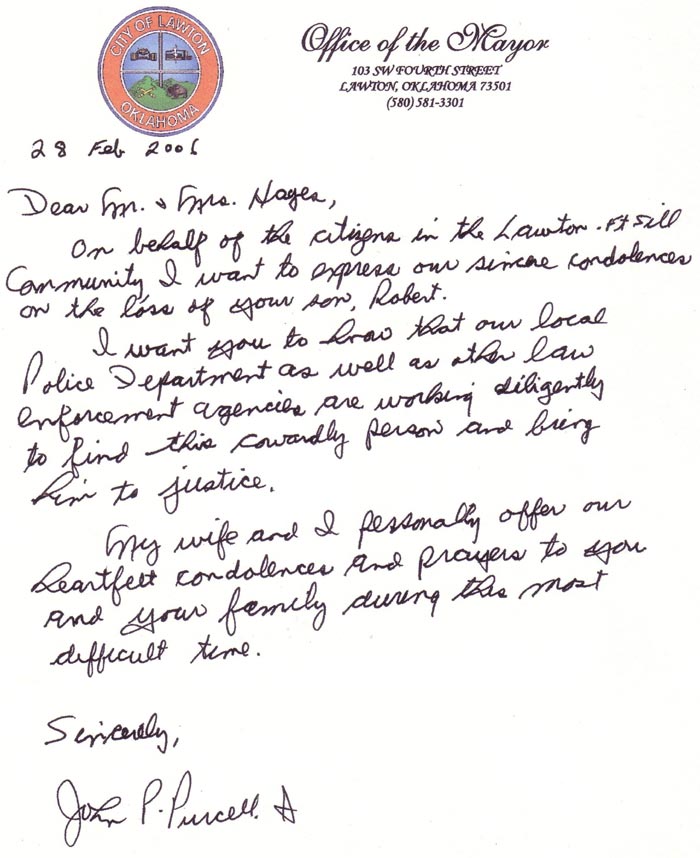 CITY OF LAWTON
OKLAHOMA
Office of the Mayor
103 SW FOURTH STREET
LAWTON, OKLAHOMA 73501
(580) 581-3301
28 Feb 2006
Dear Mr. & Mrs. Hayes,
On behalf of the citizens in the Lawton-Ft Sill
Community I want to express our sincere condolences
on the loss of your son, Robert.
I want you to know that our local
Police Department as well as other law
enforcement agencies are working diligently
to find this cowardly person and bring
him to justice.
My wife and I personally offer our
heartfelt condolences and prayers to you
and your family during this most
difficult time.
Sincerely,
John P. Purcell